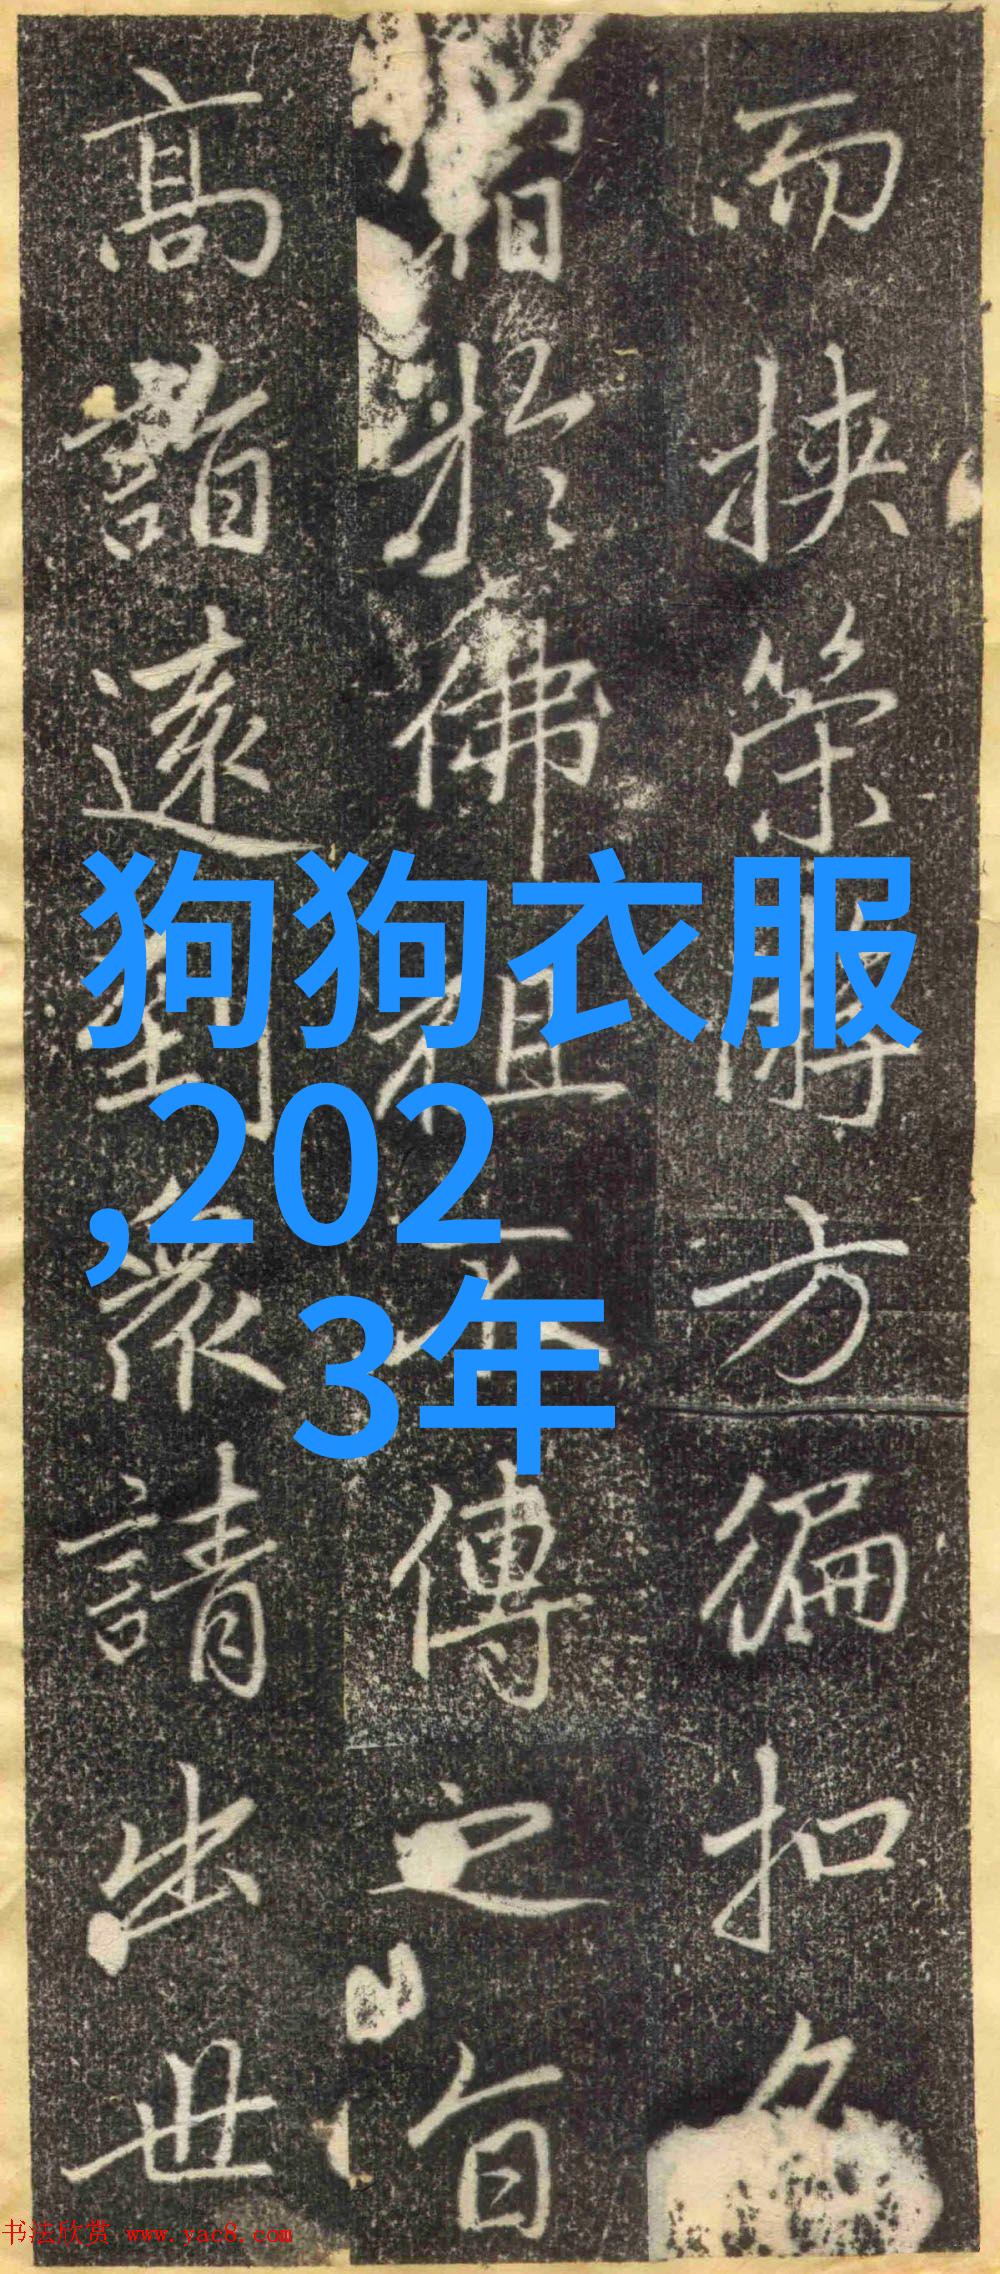 而挾策方徧扣
於佛祖不傳之旨
高遠到眾請出世
狗狗衣服
,202
3年
书法欣赏 www.yac8.com